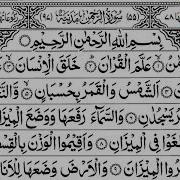 (٥٥) سُوْرَةُ الرَّحْمٰنِ مَدَنِيَّةٌ (٩٧)
بِسْمِ اللّٰهِ الرَّحْمٰنِ الرَّحِيْمِ
عَلَّمَ الْقُرْاٰنَ خَلَقَ الْاِنْسَانَ
اَلشَّمْسُ وَالْقَمَرُ بِحُسْبَانٍ
يَسْجُدٰنِ وَالسَّمَآءَ رَفَعَهَا وَوَضَعَ الْمِيْزَ
غَوْا فِى الْمِيْزَانِ وَاَقِيْمُوا الْوَزْنَ بِالْقِسْ
رُوا الْمِيْزَانَ وَالْاَرْضَ وَضَعَهَا لِلْاَنَا